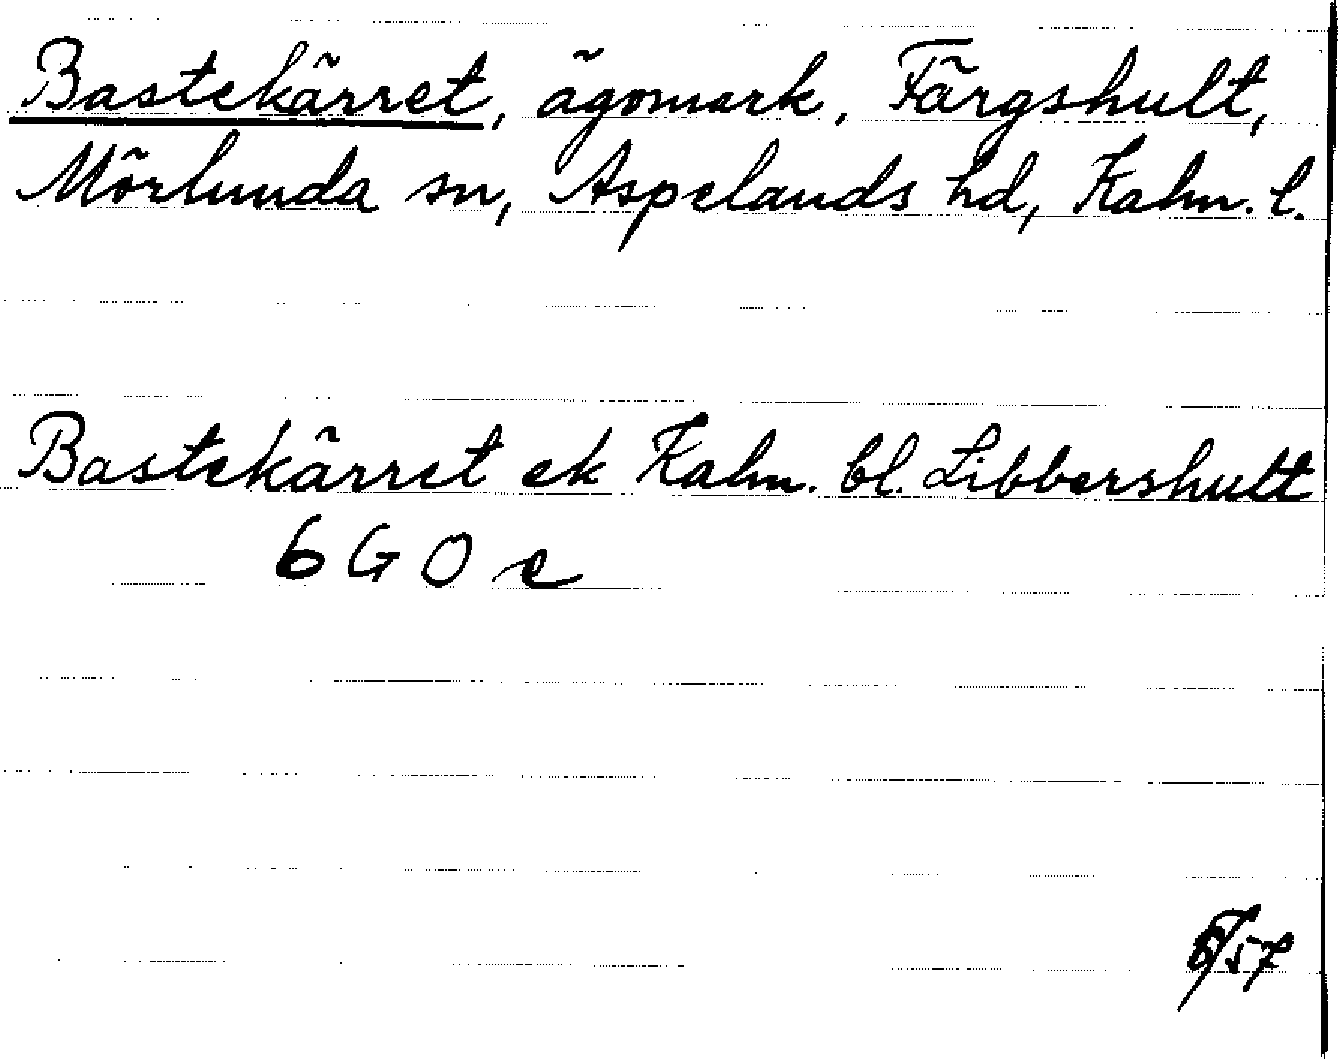 Bastekärret, ägomark, Färgshult,
Mörlunda sn, Aspelands hd, Kalm. l.
Bastekärret ek Kalm. bl. Libbershult
6 G O c
57